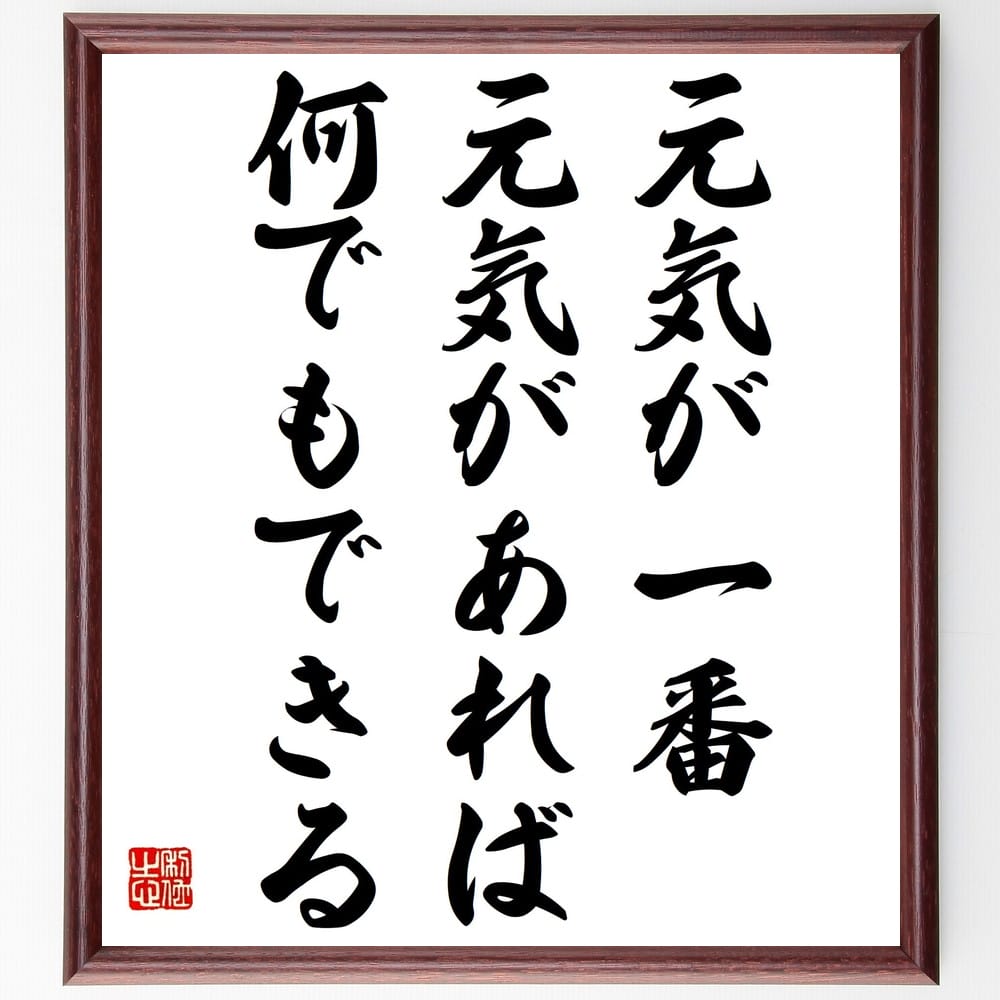 元気が一番
元気があれば
何でもできる